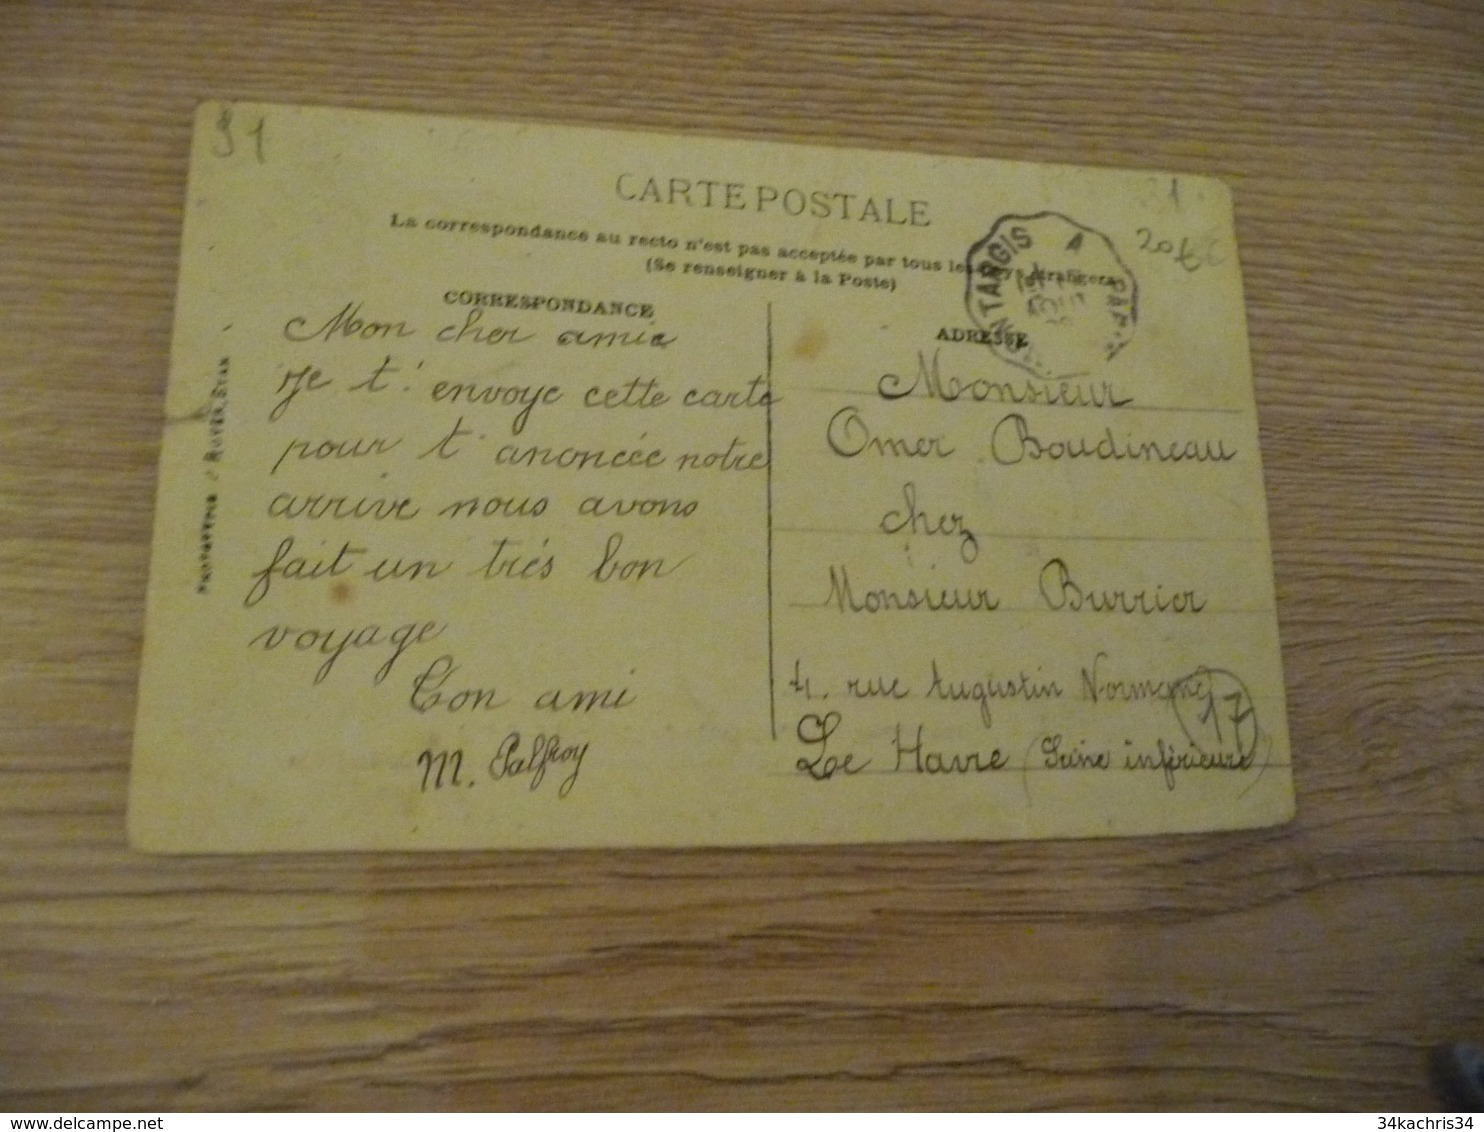 91
CARTE POSTALE
La correspondance au recto n'est pas acceptée par tous les pays étrangers
(Se renseigner à la Poste)
CORRESPONDANCE
Mon cher amie
Je t'envoye cette carte
pour t'anoncée notre
arrive nous avons
fait un trés bon
voyage
Ton ami
M. Palfroy
NTARGIS A
20
ADRESSE
Monsieur
Omer Boudineau
chez
Monsieur Burrier
4. rue Augustin Normand
Le Havre (Seine inférieure)
17
34kachris34